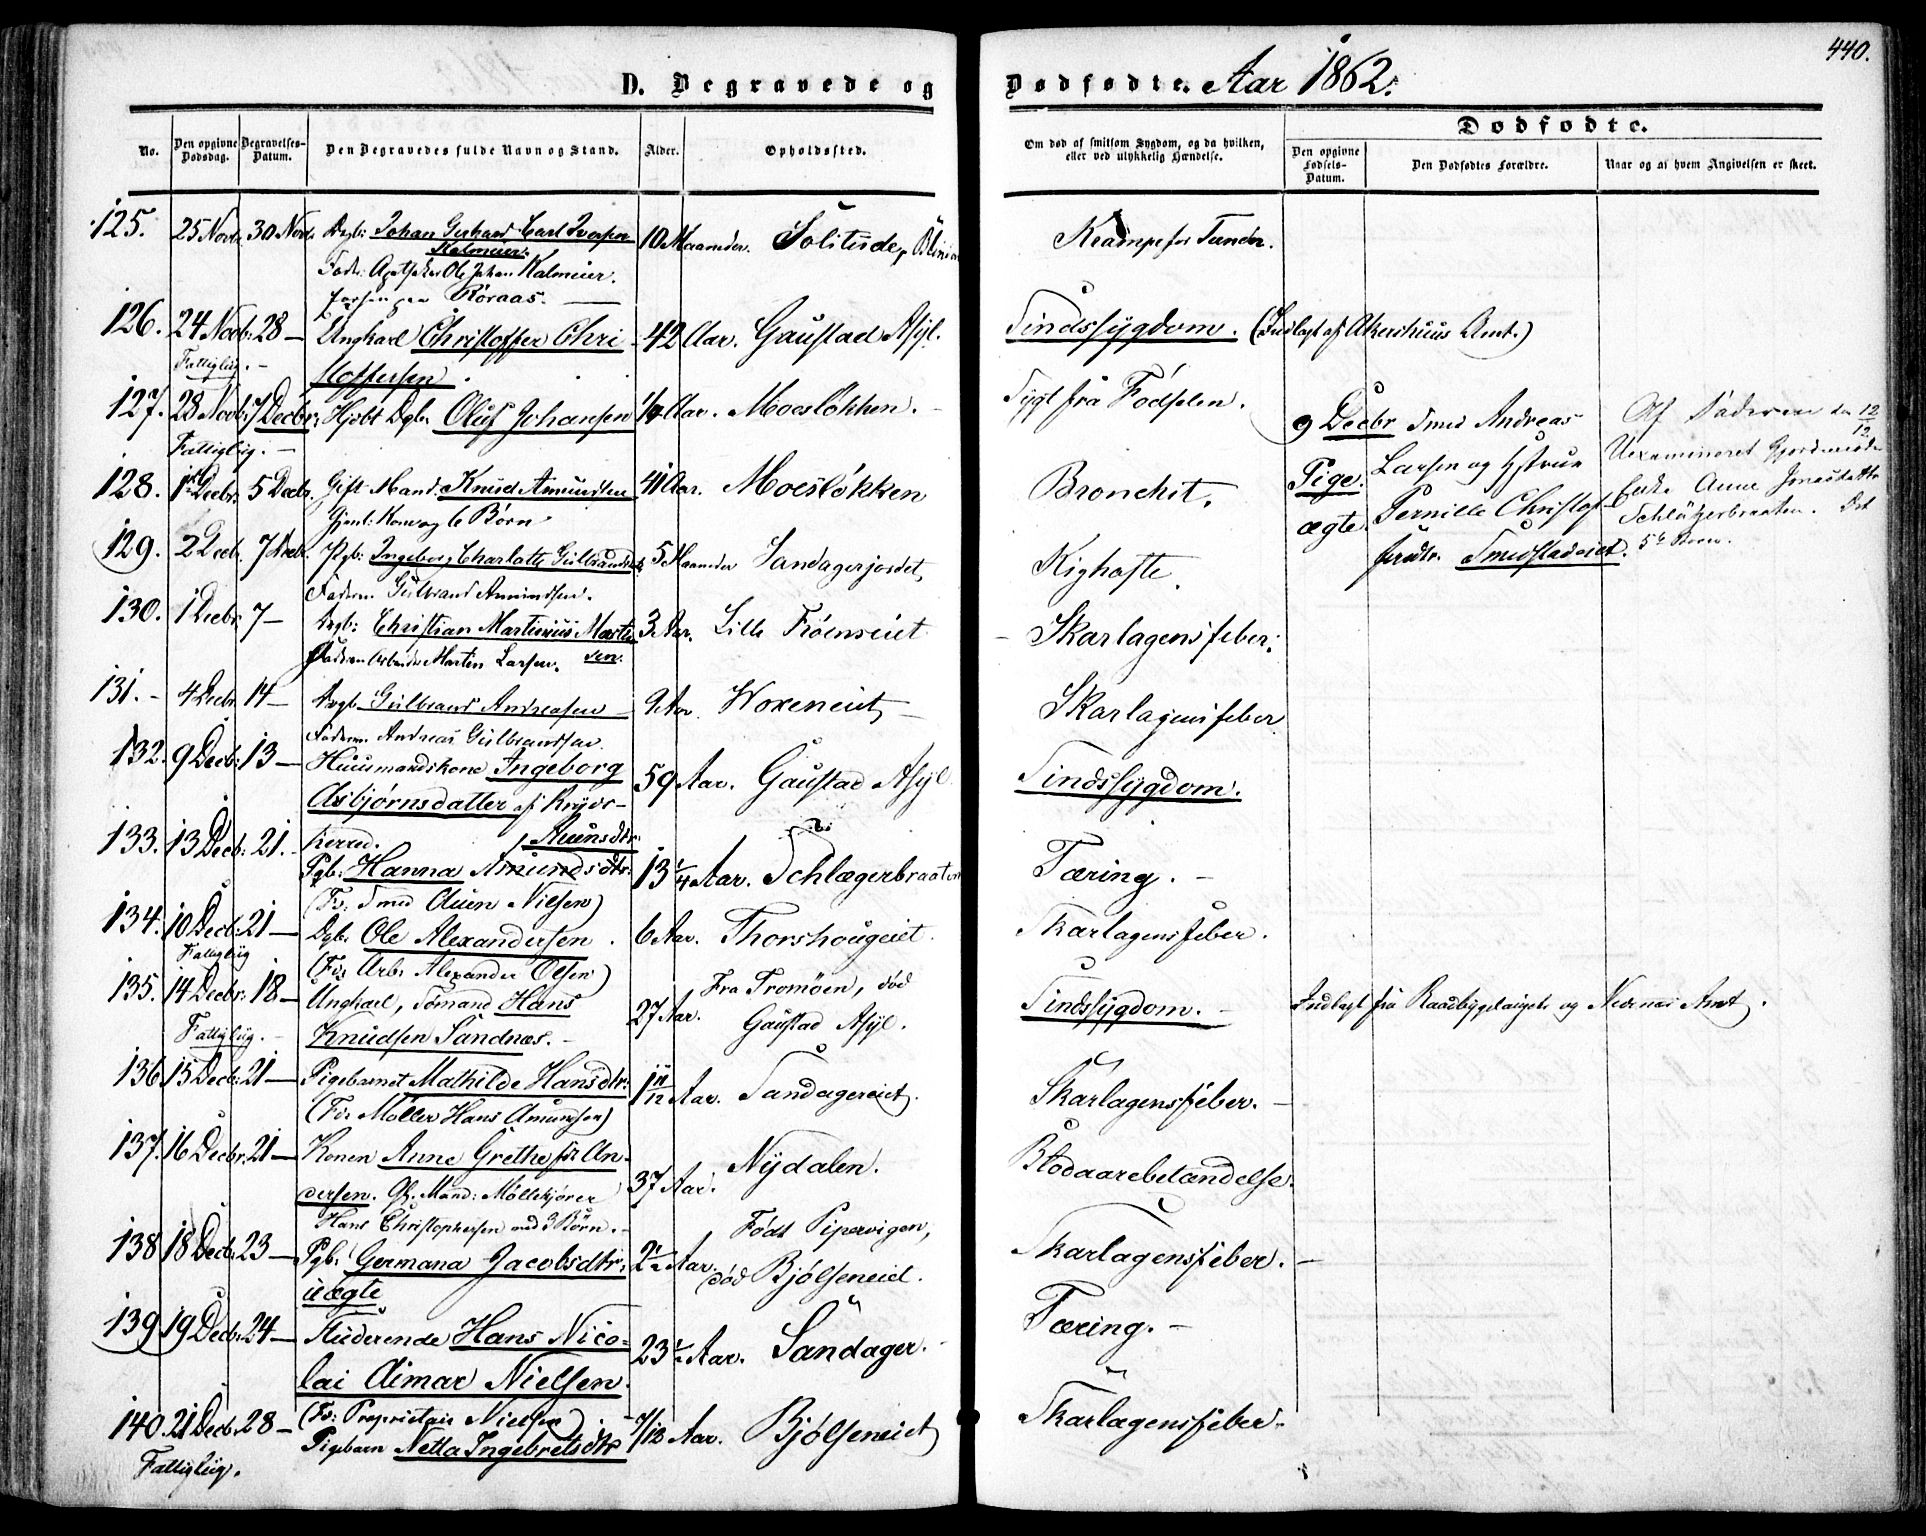 440.
D. Begravede og Dødfødte. Aar 1862.
No.
Den opgivne Dødsdag.
Begravelses-Datum.
Den Begravedes fulde Navn og Stand.
Alder.
Opholdssted.
Om død af smitsom Sygdom, og da hvilken, eller ved ulykkelig Hændelse.
Dødfødte.
Den opgivne Fødsels-Datum.
Den Dødfødtes Forældre.
Naar og af hvem Angivelsen er skeet.
125. 25 Novbr. 30 Novbr. Dgb: Johan Gerhard Carl Iversen 10 Maaneder. Solitude, Krampe for Tændr.
Kalmeier.
Fadr: Apotheker Ole Johan Kalmeier.
Røraas.
126. 24 Novb: 28 — Ungkarl Christoffer Chri- 42 Aar. Gaustad Asyl. Sindssygdom. (Indlagt af Akershuus Amt.)
Fattiglig. — stoffersen.
127. 28 Novb: 7 Decbr: Hjdbt Dgb. Oluf Johansen Aar. Moesløkken. Sygt fra Fødselen.
Fattiglig. —
9 Decbr Smed Andreas
Pige. Larsen og Hstrue
ægte. Pernille Christof-
fersdtr. Smedstadeiet.
Af Faderen den 12/12
Uexamineret Gjordemoder
Enke Anne Jonasdatter
Schlægerbraaten. Det
5te Barn.
128. 1ste Decbr. 5 Decbr. Gift Mand: Knud Amundsen 41 Aar. Moesløkken Bronchit.
Gjenl: Kone og 6 Børn
129. 2 Decb. 7 Decb. Pgb: Ingeborg Charlotte Gulbrandsdtr. 5 Maaneder Sandagerjordet, Kighoste.
Faderen Gulbrand Amundsen.
130. 1 Decbr. 7 — Drgb: Christian Martinius Martin- 3 Aar. Lille Frøenseiet — Skarlagensfeber.
Faderen Arbeider Martin Larsen. sen.
131. — 4 Decbr. 14 — Drgb. Gulbrand Andreasen 9 Aar. Woxeneiet, — Skarlagensfeber
Faderen Andreas Gulbrandsen.
132. 9 Decb: 13 — Huusmandskone Ingeborg 59 Aar. Gaustad Asyl Sindssygdom.
Asbjørnsdatter af
herred.
133. 13 Decb: 21. — Pgb: Hanna Amundsdtr. Auensdtr. 13 1/4 Aar. Schlægerbraaten Tæring. —
(Fr: Smed Auen Nielsen)
134. 10 Decb: 21 — Dgb. Ole Alexandersen. 6 Aar. Thorshougeiet. Skarlagensfeber.
Fattiglig (Fr: Arb: Alexander Olsen)
135. 14 Decbr: 18 — Ungkarl, Sømand Hans 27 Aar. Fra Tromøen, død Sindssygdom. — Indlagt fra Raabygdelaugets og Nedenæs Amt.
Fattiglig. — Knudsen Sandnæs. — Gaustad Asyl.
136. 15 Decb: 21 — Pigebarnet Mathilde Hansdtr. 1 11/12 Aar. Sandagereiet. Skarlagensfeber. —
(Fr: Møller Hans Amundsen)
137. 16 Decbr. 21 — Konen Anne Grethe f. An- 37 Aar. Nydalen. Blodaarebetændelse.
dersen. Gl. Mand: Møllekjører
Hans Christophersen med 3 Børn. —
138 18 Decb. 23 — Pgb: Germana Jacobsdtr. 2 1/2 Aar. Født Pipervigen, Skarlagensfeber. —
uægte død Bjølseneiet.
139 19 Decb. 24 — Studerende Hans Nico- 23 1/2 Aar. Sandager. — Tæring. —
lai Aimar Nielsen.
(Fr: Proprietair Nielsen)
140. 21 Decb. 28 — Pigebarn Netta Ingebretsdtr 7/12 Aar. Bjølseneiet Skarlagensfeber.
Fattiglig.